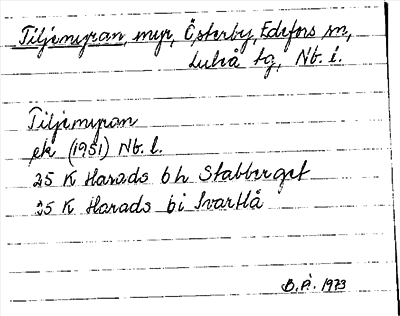 Tiljemyran, myr, Österby, Edefors sn,
Luleå tg, Nb. l.
Tiljemyran
ek (1951) Nb. l.
25 K Harads 6 h Stabberget
25 K Harads 6 i Svartlå
B.Å. 1973